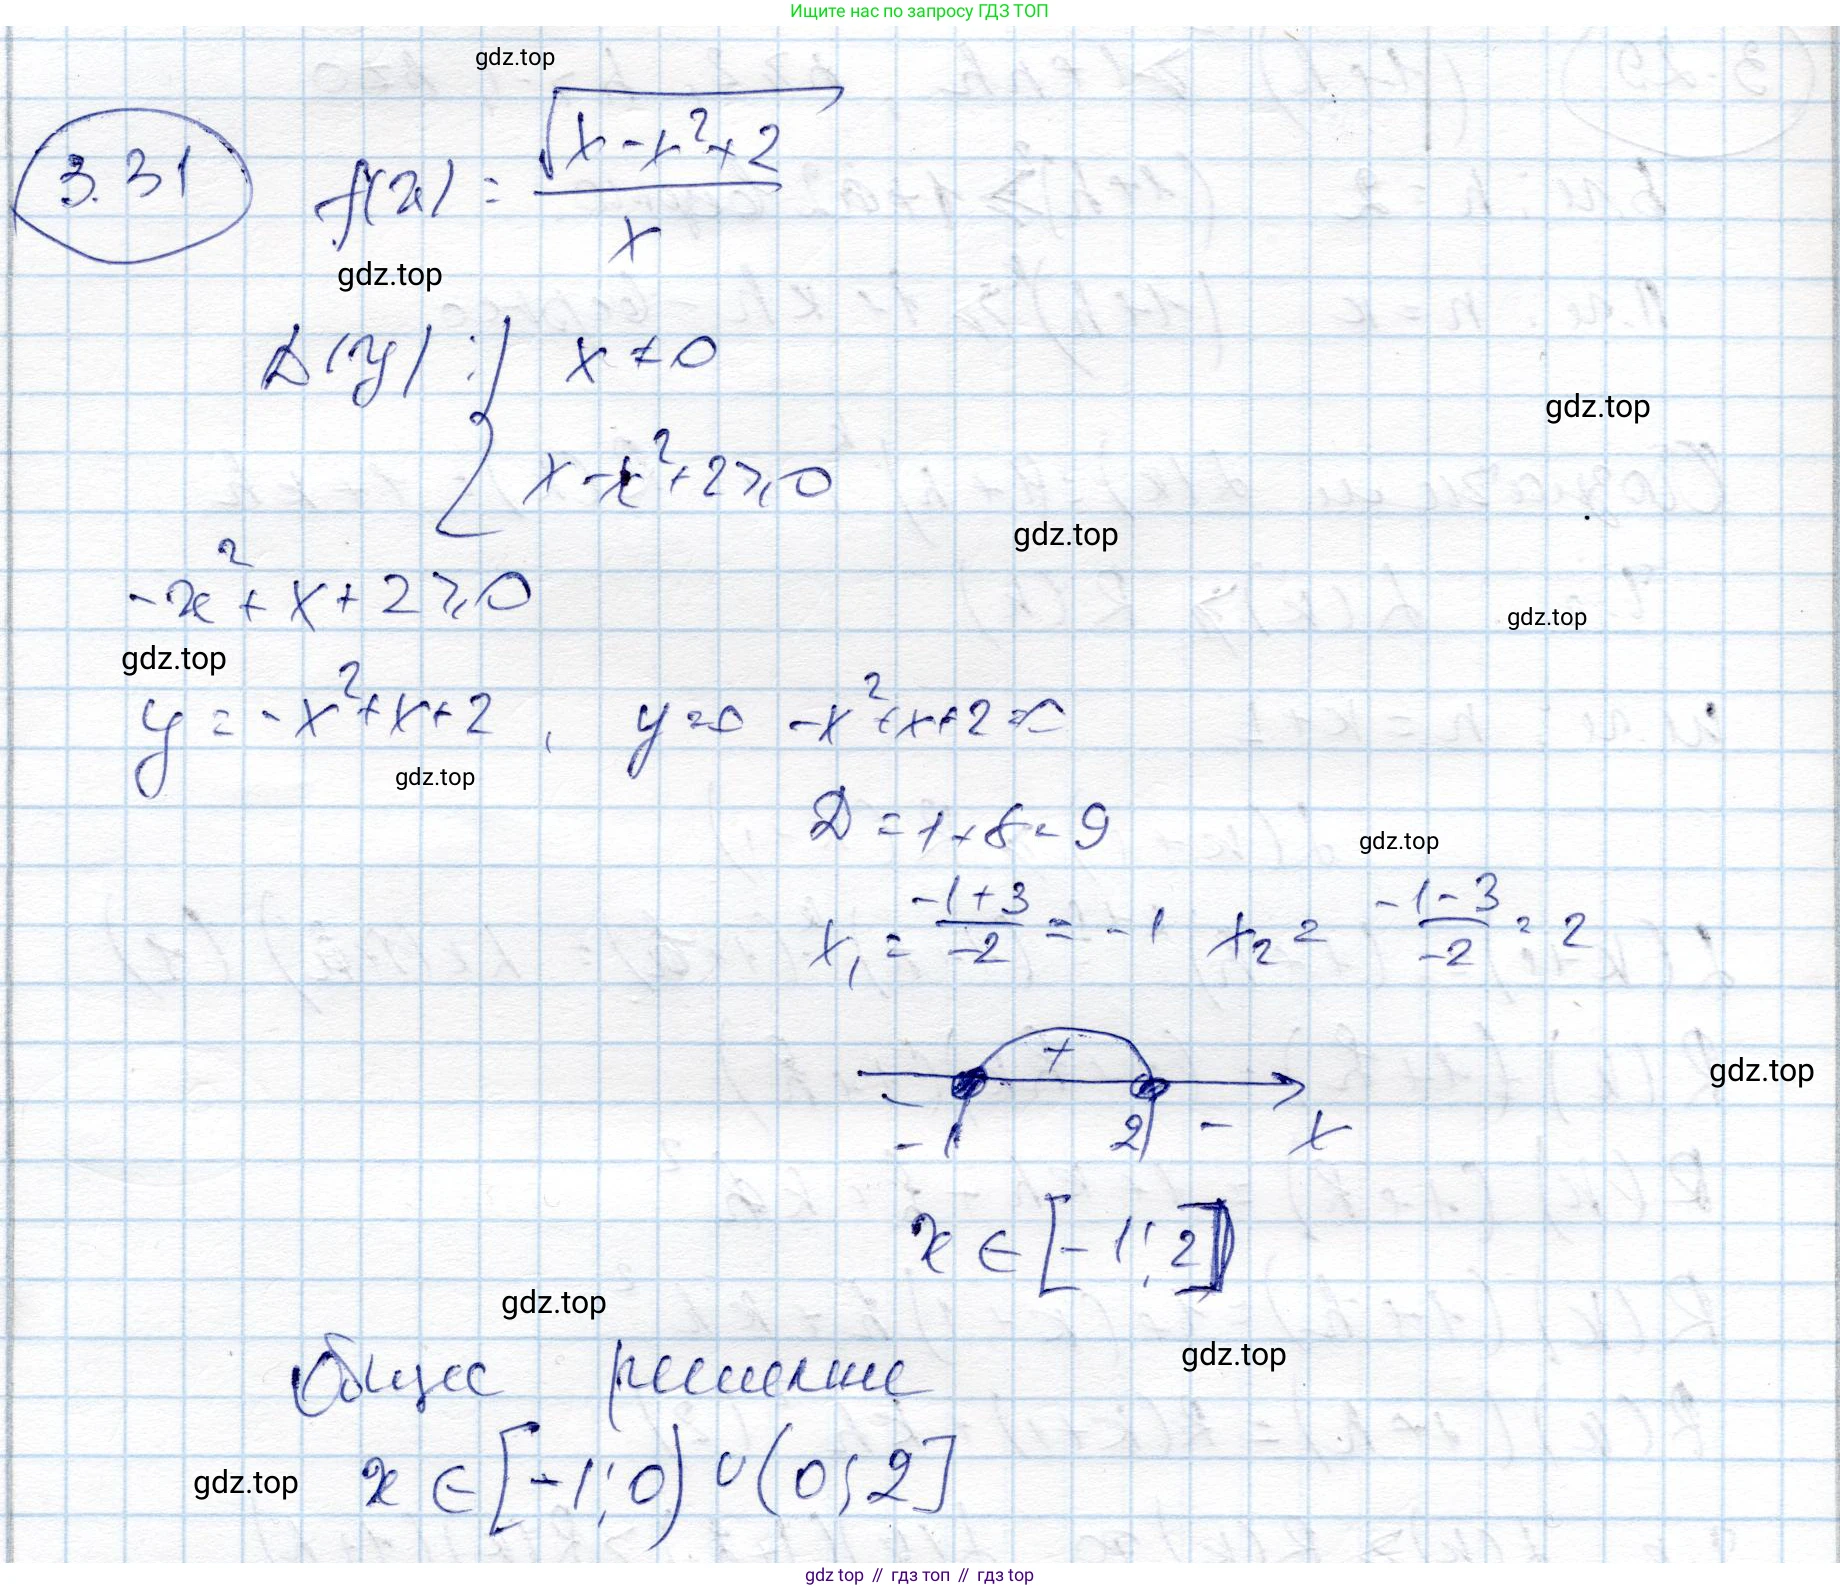 Ищите нас по запросу ГДЗ ТОП
gdz.top
3.31 f(x) = √(x-x²+2) / x
gdz.top
D(y) : { x ≠ 0
gdz.top
x-x²+2⩾0
gdz.top
-x²+x+2⩾0
gdz.top
gdz.top
y = -x²+x+2, y=0 -x²+x+2=0
gdz.top
D = 1+8=9
gdz.top
x₁ = (-1+3)/(-2) = -1 x₂ = (-1-3)/(-2) = 2
+
gdz.top
- -1 2 - x
x ∈ [-1; 2]
gdz.top
gdz.top
Общее решение
x ∈ [-1; 0) ∪ (0; 2]
gdz.top
gdz top // гдз топ // гдз top